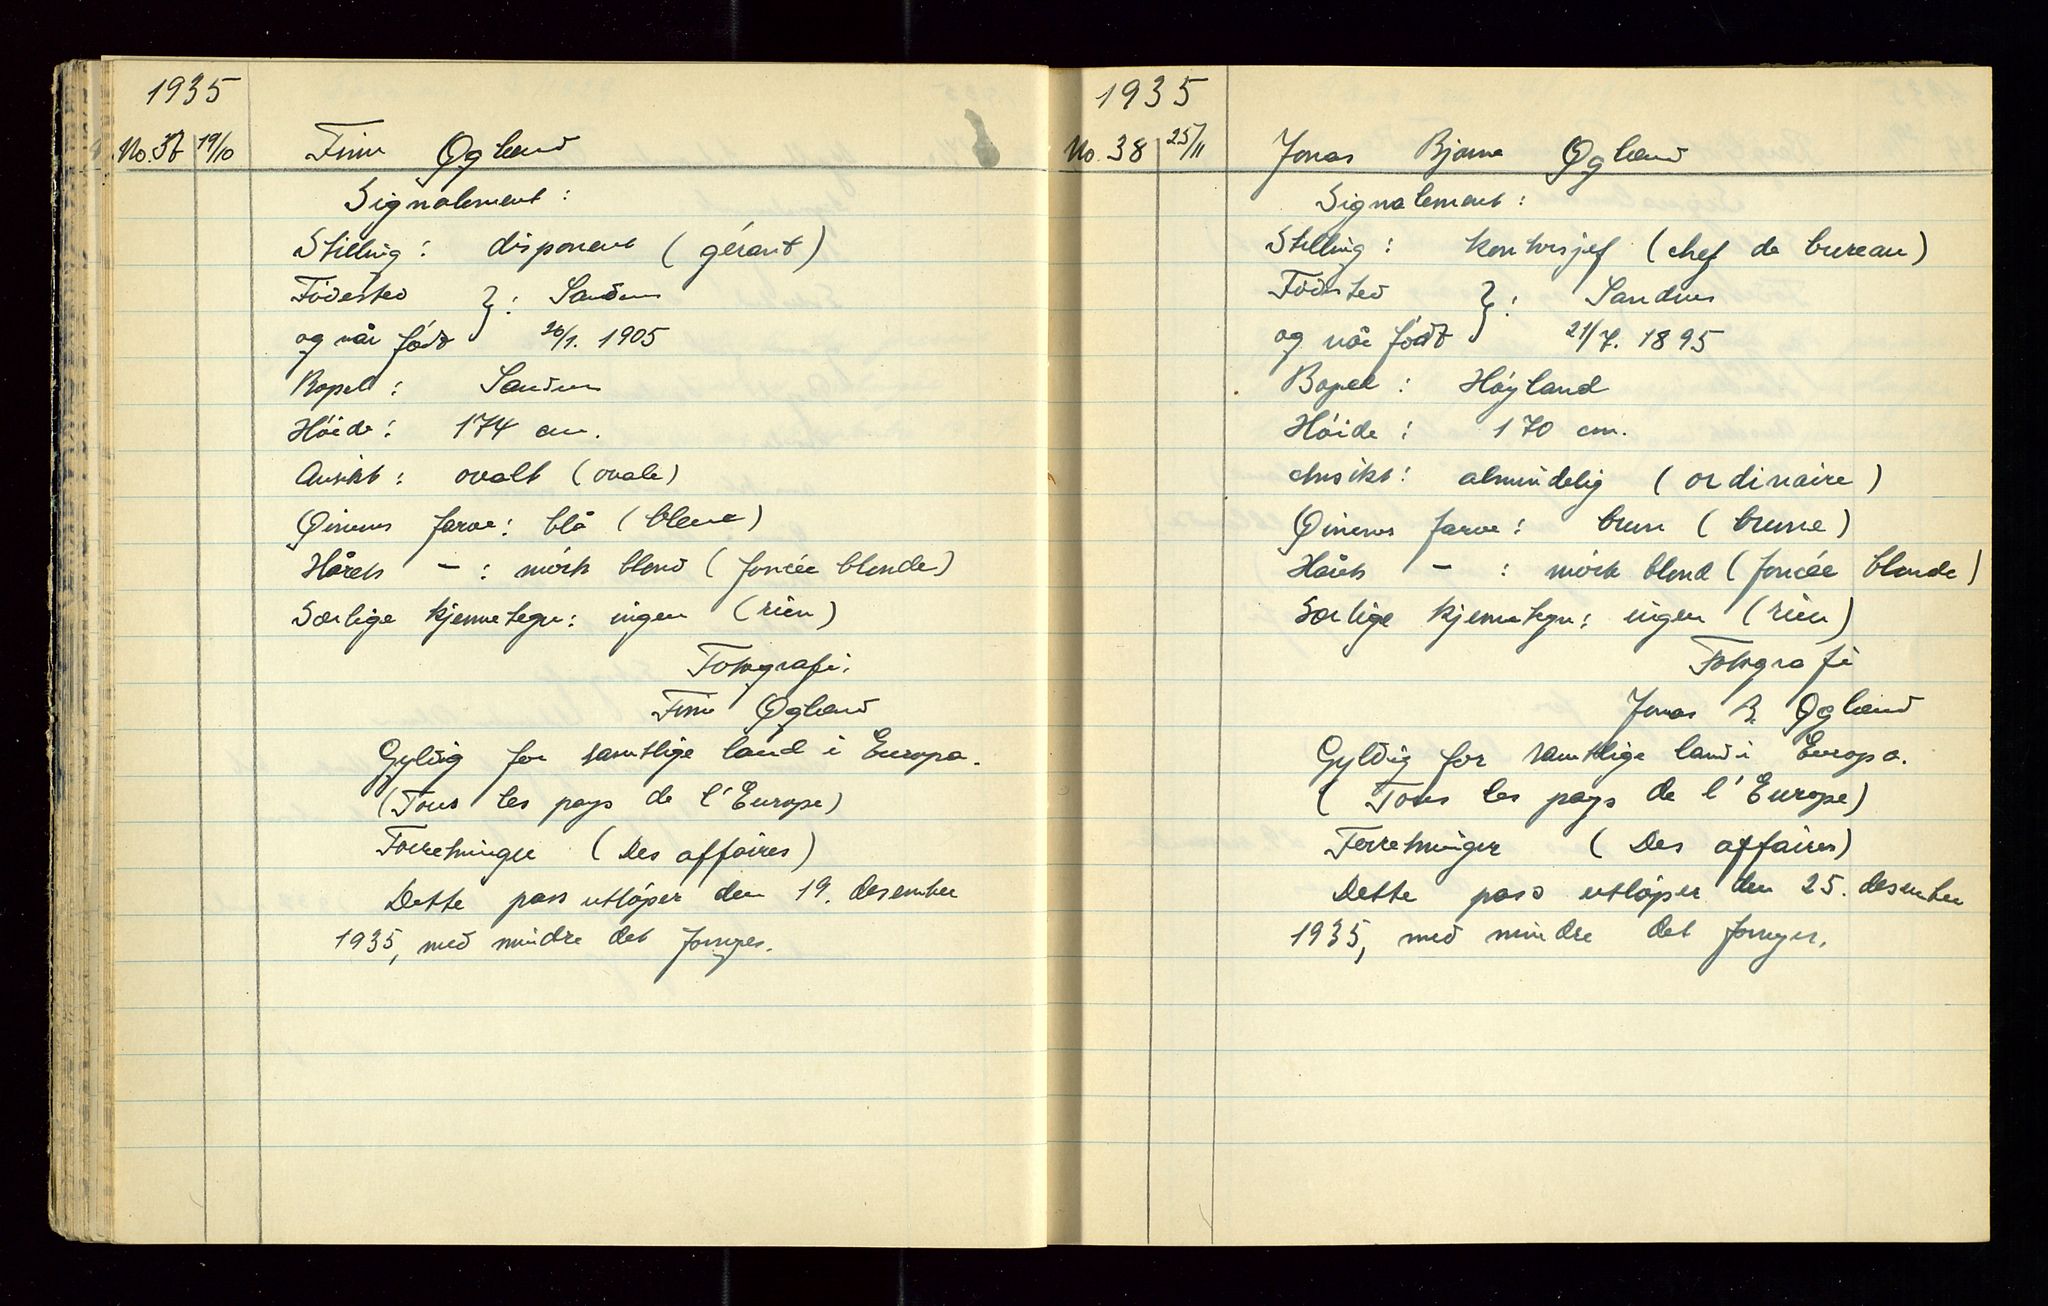 1935
No. 37 19/10 Finn Øgland
Signalement:
Stilling: disponent (gérant)
Fødested } : Sandnes
og når født 20/1. 1905
Bopel: Sandnes
Høide: 174 cm.
Ansikt: ovalt (ovale)
Øinenes farve: blå (bleue)
Hårets - : mörk blond (foncée blonde)
Særlige kjennetegn: ingen (rien)
Fotografi.
Finn Øgland
Gyldig for samtlige land i Europa.
(Tous les pays de l'Europe)
Forretninger (Des affaires)
Dette pass utløper den 19. desember
1935, med mindre det fornyes.
1935
No. 38 25/11 Jonas Bjarne Øgland
Signalement:
Stilling: kontorsjef (chef de bureau)
Fødested } : Sandnes
og når født 21/7. 1895
Bopel: Høyland
Høide: 170 cm.
Ansikt: almindelig (ordinaire)
Øinenes farve: brun (brune)
Hårets - : mörk blond (foncée blonde)
Særlige kjennetegn: ingen (rien)
Fotografi
Jonas B. Øgland
Gyldig for samtlige land i Europa.
(Tous les pays de l'Europe)
Forretninger (Des affaires)
Dette pass utløper den 25. desember
1935, med mindre det fornyes.